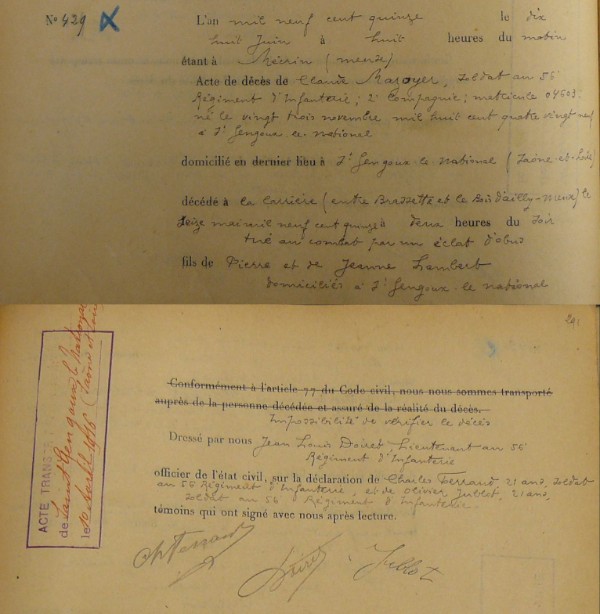 No 429
L'an mil neuf cent quinze le dix
huit Juin à huit heures du matin
étant à Mécrin (meuse)
Acte de décès de Claude Mazoyer, soldat au 56
Régiment d'Infanterie, 2e Compagnie; matricule 04503.
né le vingt trois novembre mil huit cent quatre vingt neuf
à St Gengoux-le-national
domicilié en dernier lieu à St Gengoux-le National (Saône-et-Loire)
décédé à la Carrière (entre Brassette et le Bois d'ailly-Meuse) le
seize mai mil neuf cent quinze à deux heures du soir
tué au combat par un éclat d'obus
fils de Pierre et de Jeanne Lambert
domiciliés à St Gengoux-le national
Conformément à l'article 77 du Code civil, nous nous sommes transporté
auprès de la personne décédée et assuré de la réalité du décès.
Impossibilité de vérifier le décès
Dressé par nous Jean Louis Lieutenant au 56
Régiment d'Infanterie
officier de l'état civil, sur la déclaration de Charles Ferrand, 21 ans, soldat
au 56 Régiment d'Infanterie, et de Olivier Jullot, 21 ans,
soldat au 56e Régiment d'Infanterie.
témoins qui ont signé avec nous après lecture.
Jullot
ACTE TRANS
de Saint Gengoux le National
(Saône et Loire)
le